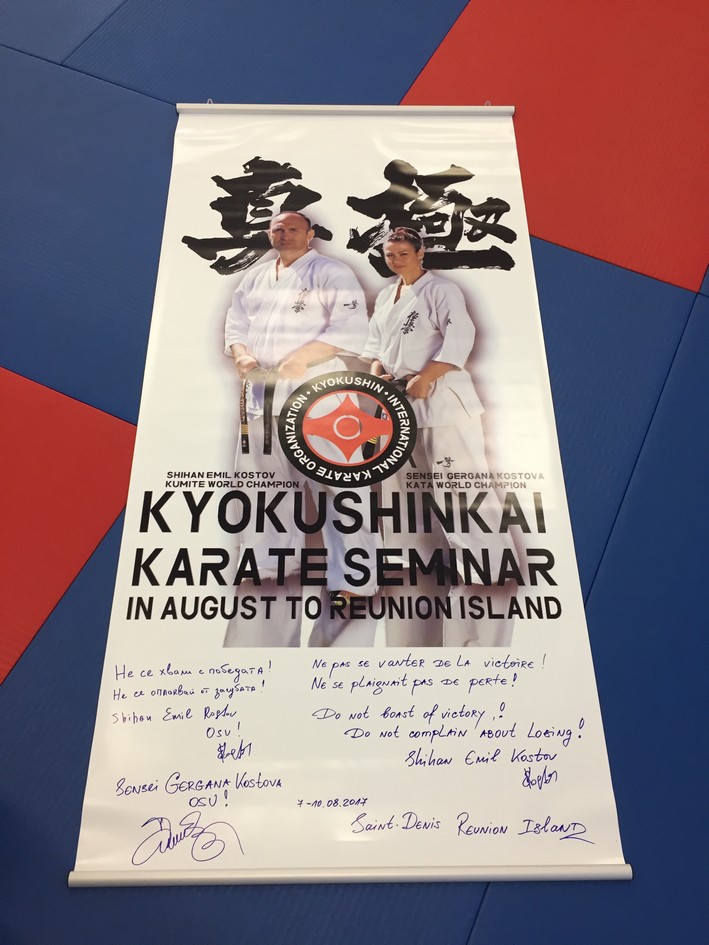 真 極
極真会
極真会
KYOKUSHIN • INTERNATIONAL KARATE ORGANIZATION •
SHIHAN EMIL KOSTOV
KUMITE WORLD CHAMPION
SENSEI GERGANA KOSTOVA
KATA WORLD CHAMPION
KYOKUSHINKAI
KARATE SEMINAR
IN AUGUST TO REUNION ISLAND
Не се хвали с победата!
Не се оплаквай от загубата!
Shihan Emil Kostov
OSU!
Sensei Gergana Kostova
OSU!
Ne pas se vanter de la victoire!
Ne se plaignait pas de perte!
Do not boast of victory,!
Do not complain about losing!
Shihan Emil Kostov
7-10.08.2017
Saint-Denis Reunion Island